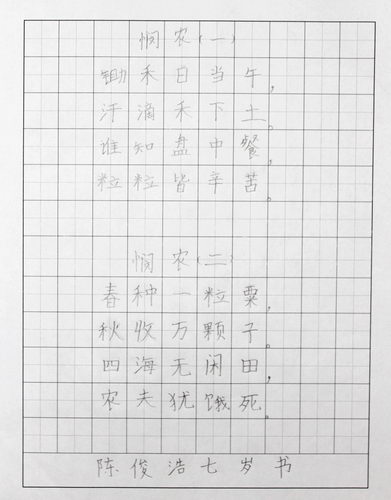 悯农(一)
锄禾日当午,
汗滴禾下土。
谁知盘中餐,
粒粒皆辛苦。
悯农(二)
春种一粒粟,
秋收万颗子。
四海无闲田,
农夫犹饿死。
陈俊浩七岁书